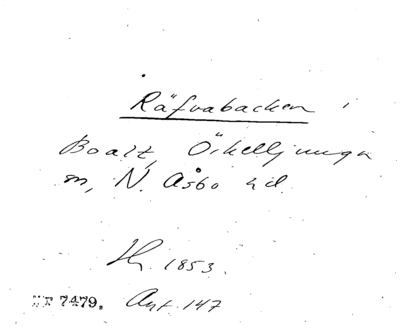 Räfvabacken i
Boalt, Örkelljunga
m, N. Åsbo hd.
1853.
7479. Ant. 147